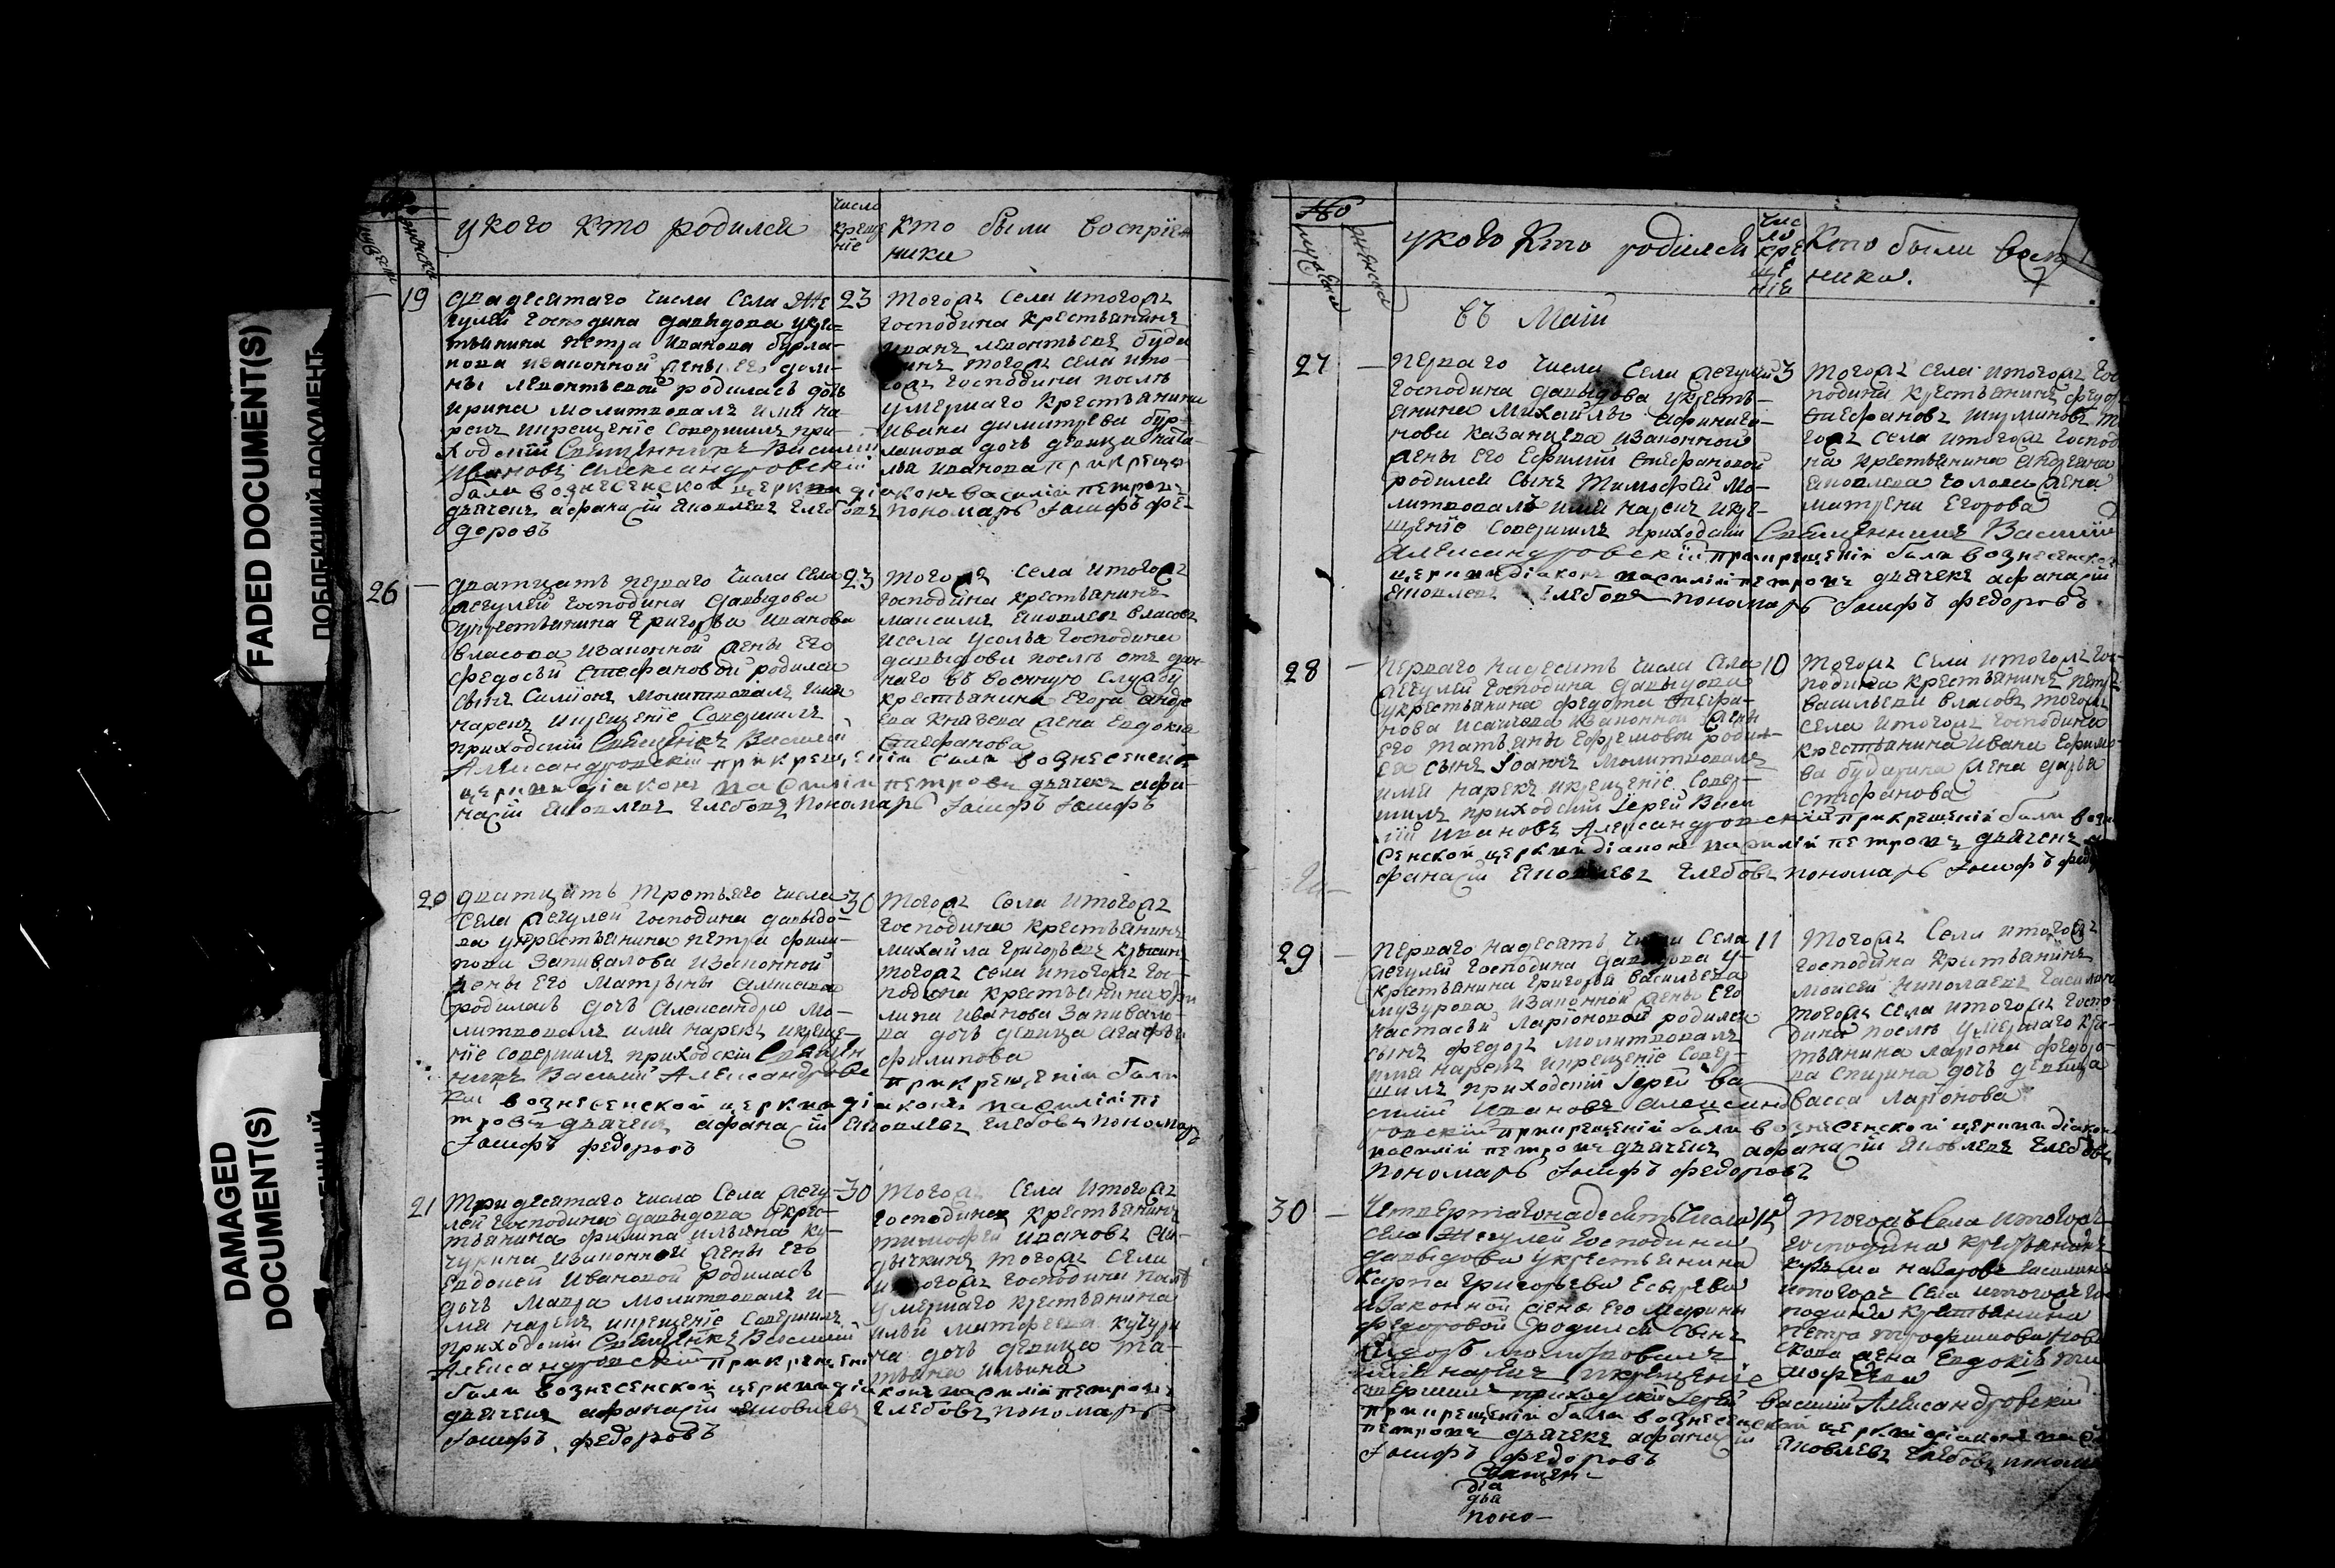 FADED DOCUMENT(S)
DAMAGED
DOCUMENT(S)
у кого кто родился
число
креще
ніе
кто были воспріем
ники
19
двадесятаго числа села Же
23
гулей господина давыдова у крес
тьянина петра иванова бурла
кова изаконной жены его дом
ны леонтьевой родилась дочь
ирина молитвовалъ имя на
рекъ икрещеніе совершилъ при
ходскій Священникъ Василій
Ивановъ Александровскій
были вознесенской церкви діаконъ василій петровъ
дьячекъ афанасій Яковлевъ Глебовъ пономарь Іосифъ Фе
доровъ
тогожъ села итогожъ
господина крестьянинъ
иванъ леонтьевъ
тогожъ села ито
гожъ господина послѣ
умершаго крестьянина
ивана димитрева бур
лакова дочь девица ната
лья иванова при креще
26
дватцать перваго числа села
23
жегулей господина давыдова
укрестьянина Григорья иванова
власова изаконной жены его
федосьи Стефановой родился
сынъ Симіонъ молитвовалъ имя
нарекъ икрещеніе Совершилъ
приходскій Священикъ Василій
Александровскій при крещеніи были вознесенской
церкви діаконъ василій петровъ дьячекъ афа
насій Яковлевъ Глебовъ Пономарь Іосифъ Іосифъ
тогожъ села итогожъ
господина крестьянинъ
максимъ Яковлевъ власовъ
исела усолья господина
давыдова послѣ отъ дан
наго въ военную службу
крестьянина Егора андре
ева князева жена Евдокия
Стефанова
20
дватцать третьего числа
30
села жегулей господина давыдо
ва укрестьянина петра фили
пова Запивалова изаконной
жены его матрены
родилась дочь Александра мо
литвовалъ имя нарекъ икреще
ніе совершилъ приходскій Священ
никъ Василій Александровс
кій вознесенской церкви діаконъ василій пе
тровъ дьячекъ афанасій Яковлевъ Глебовъ пономарь
Іосифъ федоровъ
тогожъ села итогожъ
господина крестьянинъ
михайла григорьевъ
тогожъ села итогожъ гос
подина крестьянина фи
липа иванова Запивало
ва дочь девица агафья
филипова
при крещеніи были
21
тридесятаго числа села жегу
30
лей господина давыдова укрес
тьянина филипа ильина ку
чурина изаконной жены его
Евдокеи Ивановой родилась
дочь мавра молитвовалъ и
мя нарекъ икрещеніе совершилъ
приходскій Священикъ Василій
Александровскій при крещеніи
были вознесенской церкви діаконъ василій петровъ
дьячекъ афанасій Яковлевъ Глебовъ пономарь
Іосифъ федоровъ
тогожъ села итогожъ
господина крестьянинъ
тимофей ивановъ
тогожъ села
итогожъ господина послѣ
умершаго крестьянина
ильи матфеева кучури
на дочь девица та
тьяна ильина
мужеска
женска
у кого кто родился
чис
ло
кре
ще
ніе
кто были восп
ники.
въ Маіи
27
перваго числа села жегулей
3
господина давыдова укресть
янина михайлы афинаге
нова казанцева изаконной
жены его Ефиміи Стефановой
родился сынъ Тимофей мо
литвовалъ имя нарекъ икре
щеніе совершилъ приходскій Священникъ Василій
Александровскій при крещеніи были вознесенской
церкви діаконъ василій петровъ дьячекъ афанасій
Яковлевъ Глебовъ пономарь Іосифъ федоровъ
тогожъ села итогожъ гос
подина крестьянинъ федоръ
Стефановъ
гожъ села итогожъ господ
на крестьянина андреяна
Яковлева жена
матрена Егорова
28
перваго надесять числа села
10
жегулей господина давыдова
укрестьянина федота Стефа
нова Исаичева изаконной жены
его татьяны Ефремовой родил
ся сынъ Іоаннъ молитвовалъ
имя нарекъ икрещеніе совер
шилъ приходскій Іерей Васи
лій Ивановъ Александровскій при крещеніи были возне
сенской церкви діаконъ василій петровъ дьячекъ а
фанасій Яковлевъ Глебовъ пономарь Іосифъ федо
тогожъ села итогожъ гос
подина крестьянинъ петръ
васильевъ власовъ тогожъ
села итогожъ господина
крестьянина ивана Ефимо
ва бударина жена дарья
Стефанова
29
перваго надесять числа села
11
жегулей господина давыдова у
крестьянина григорья васильева
музурова изаконной жены его
настасьи Ларіоновой родился
сынъ федоръ молитвовалъ
имя нарекъ икрещеніе совер
шилъ приходскій Іерей Ва
силій Ивановъ Александ
ровскій при крещеніи были вознесенской церкви діаконъ
василій петровъ дьячекъ афанасій Яковлевъ Глебовъ
пономарь Іосифъ федоровъ
тогожъ села итогожъ
господина крестьянинъ
моисей николаевъ
тогожъ села итогожъ госпо
дина послѣ умершаго крес
тьянина ларіона федоро
ва дочь девица
васса Ларіонова
30
Четвертагонадесять числа
села Жегулей господина
давыдова укрестьянина
карпа григорьева
изаконной жены его Марины
федоровой родился сынъ
молитвовалъ
имя нарекъ икрещеніе
совершилъ приходскій Іерей Василій Александровскій
при крещеніи были вознесенской церкви діаконъ
петровъ дьячекъ афанасій Яковлевъ Глебовъ
Іосифъ федоровъ
тогожъ села итогожъ
господина крестьянинъ
козьма назаровъ
итогожъ села итогожъ гос
подина крестьянина
петра
жена Евдокія ти
мофеева
Священ
діа
дья
поно